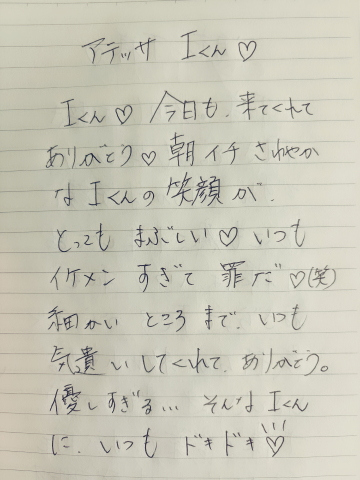 アテッサ Iくん♡
Iくん♡ 今日も、来てくれて
ありがとう♡ 朝イチ さわやか
な Iくんの笑顔が、
とっても まぶしい♡ いつも
イケメン すぎて 罪だ♡(笑)
細かい ところ まで、いつも
気遣いしてくれて、ありがとう。
優しすぎる... そんな Iくん
に、いつも ドキドキ♡